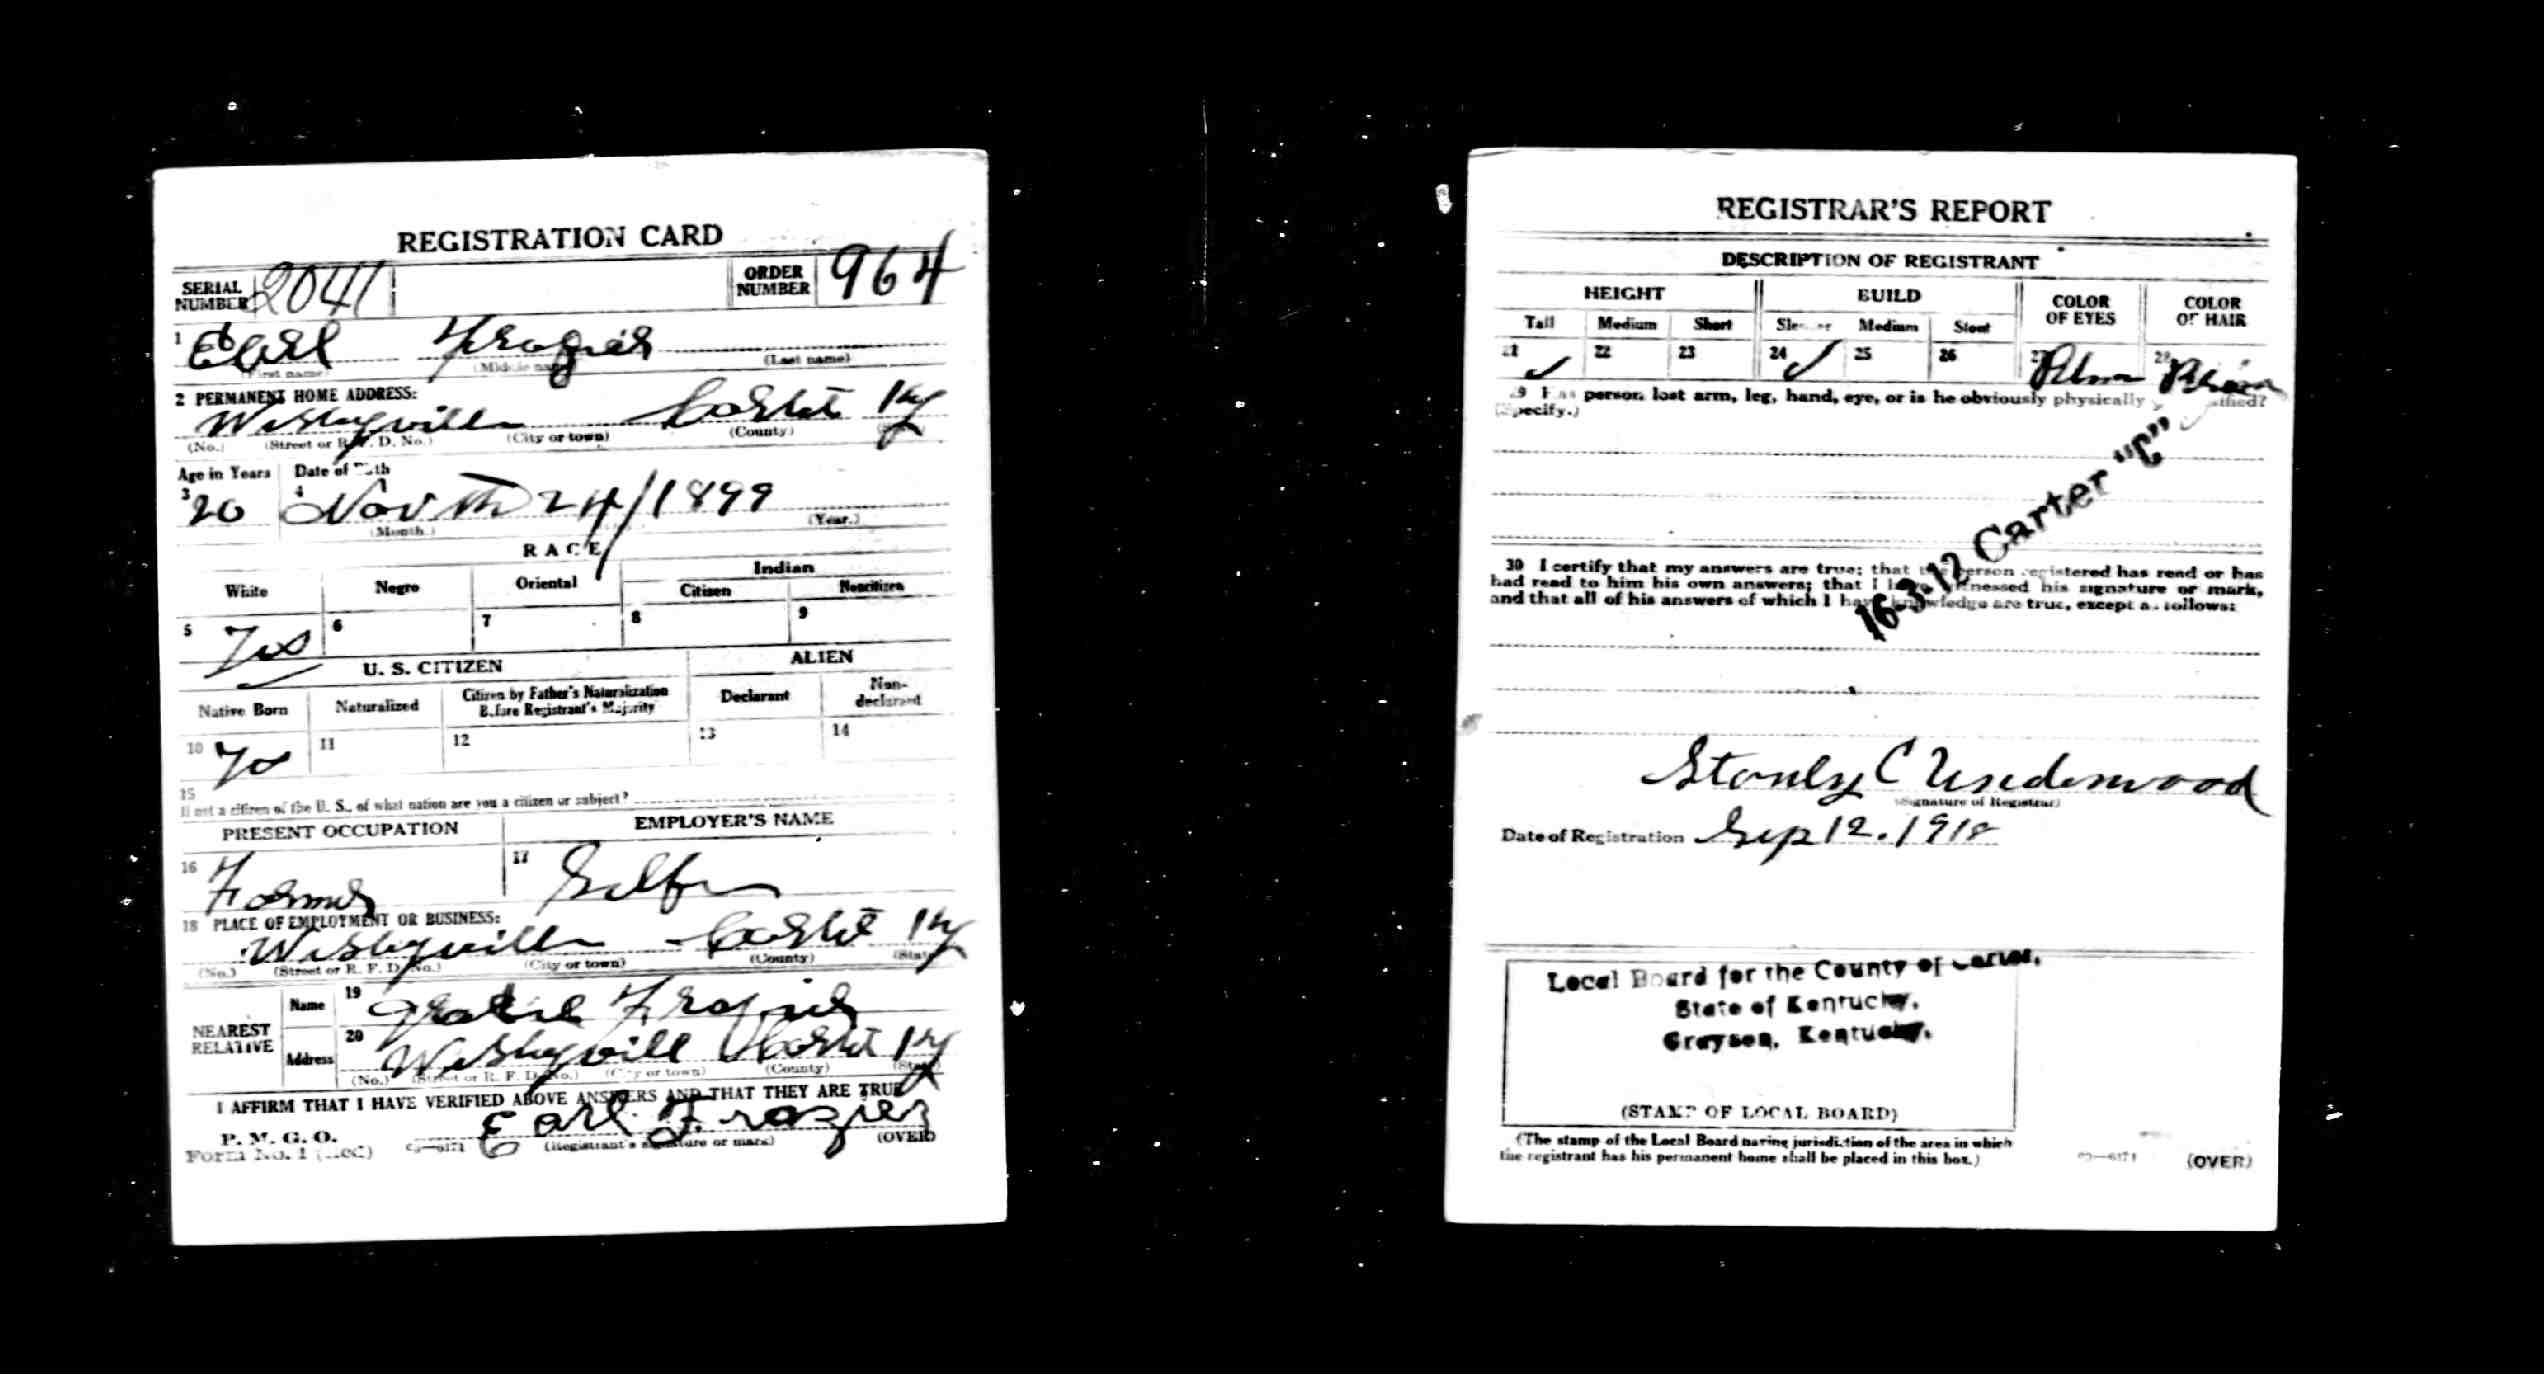 REGISTRATION CARD
SERIAL NUMBER 2041 ORDER NUMBER 964
1 Earl Frazier
(First name) (Middle name) (Last name)
2 PERMANENT HOME ADDRESS:
Wesleyville Carter Ky
(No.) (Street or R. F. D. No.) (City or town) (County)
Age in Years Date of Birth
3 20 4 Nov 24/1899
(Month.) (Year.)
RACE
White Negro Oriental Indian
Citizen Noncitizen
5 Yes 6 7 8 9
U. S. CITIZEN ALIEN
Native Born Naturalized Citizen by Father's Naturalization Before Registrant's Majority Declarant Non-declarant
10 Yes 11 12 13 14
15
If not a citizen of the U. S., of what nation are you a citizen or subject?
PRESENT OCCUPATION EMPLOYER'S NAME
16 Farmer 17 Self
18 PLACE OF EMPLOYMENT OR BUSINESS:
Wesleyville Carter Ky
(No.) (Street or R. F. D. No.) (City or town) (County) (State)
NEAREST RELATIVE Name 19 Frazier
Address 20 Wesleyvill Carter Ky
(No.) (Street or R. F. D. No.) (City or town) (County) (State)
I AFFIRM THAT I HAVE VERIFIED ABOVE ANSWERS AND THAT THEY ARE TRUE
P. M. G. O.
Form No. 1 (Red) Earl Frazier
(Registrant's signature or mark) (OVER)
REGISTRAR'S REPORT
DESCRIPTION OF REGISTRANT
HEIGHT BUILD COLOR OF EYES COLOR OF HAIR
Tall Medium Short Slender Medium Stout
21 ✓ 22 23 24 ✓ 25 26 27 28
29 Has person lost arm, leg, hand, eye, or is he obviously physically disqualified?
(Specify.)
16-3-12 Carter "C"
30 I certify that my answers are true; that the person registered has read or has
had read to him his own answers; that I have witnessed his signature or mark,
and that all of his answers of which I have knowledge are true, except as follows:
Stanley C Underwood
(Signature of Registrar)
Date of Registration Sep 12. 1918
Local Board for the County of Carter,
State of Kentucky,
Grayson, Kentucky.
(STAMP OF LOCAL BOARD)
(The stamp of the Local Board having jurisdiction of the area in which
the registrant has his permanent home shall be placed in this box.)
(OVER)